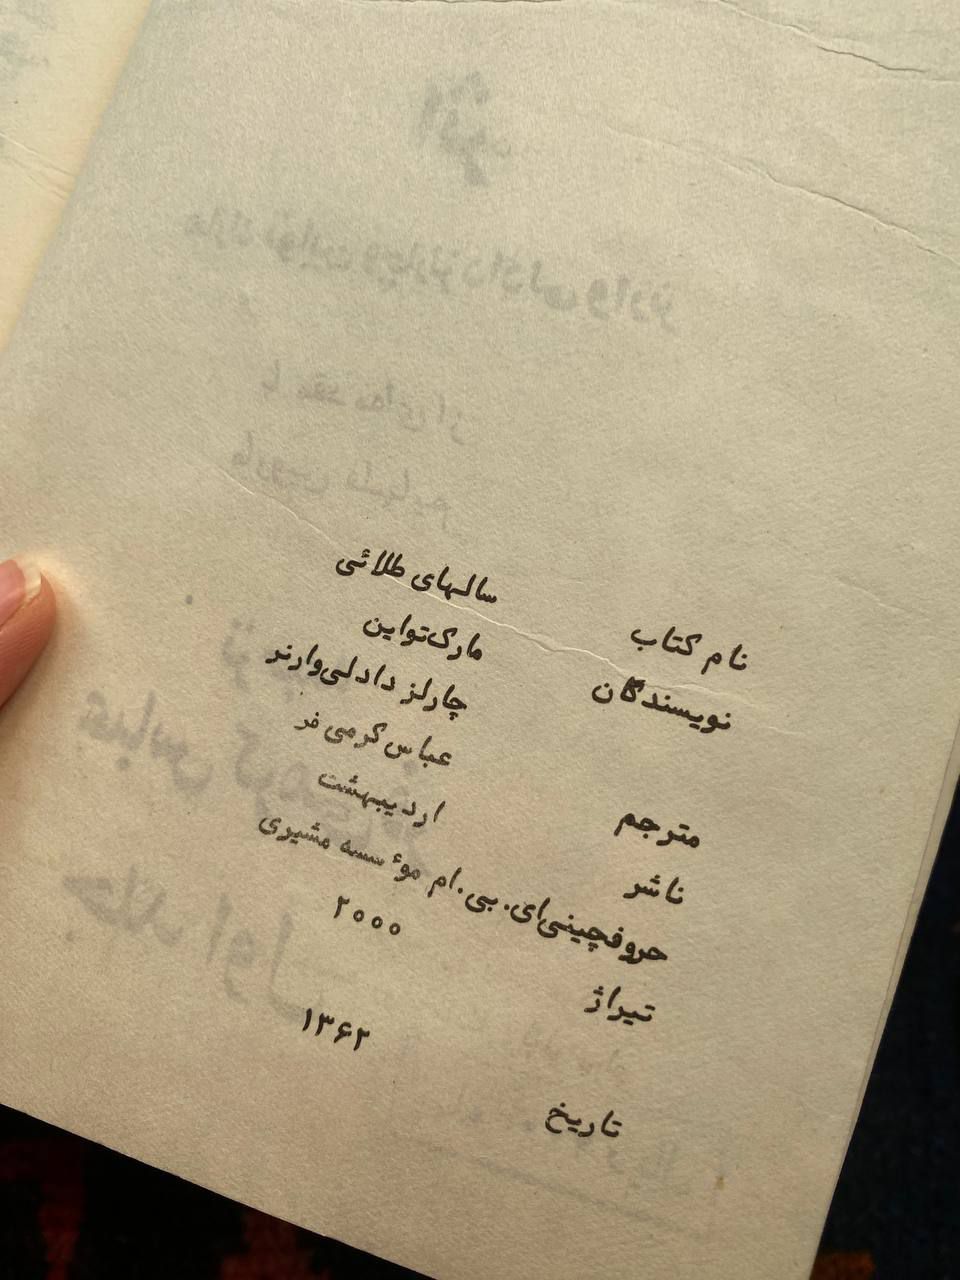 نام کتاب سالهای طلائی
نویسندگان مارک‌تواین
چارلز دادلی‌وارنر
مترجم عباس کرمی فر
ناشر اردیبهشت
حروفچینی‌ای. بی. ام موٴسسه مشیری
تیراژ ۲۰۰۰
تاریخ ۱۳۶۲